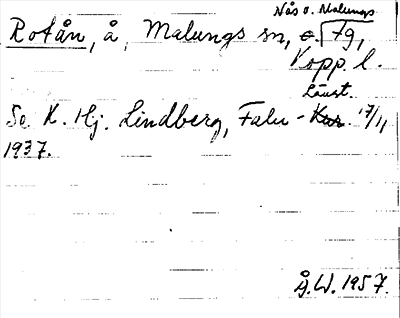 Nås o. Malungs
Rotån, å, Malungs sn, fg,
Kopp. l.
Länst.
Se K. Hj. Lindberg, Falu - 17/11
1937.
Å.W. 1957.